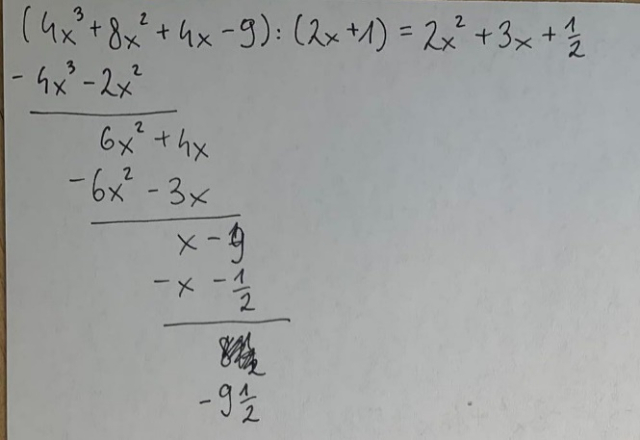 (4x³+8x²+4x-9):(2x+1)=2x²+3x+½
-4x³-2x²
6x²+4x
-6x²-3x
x-9
-x-½
-9½